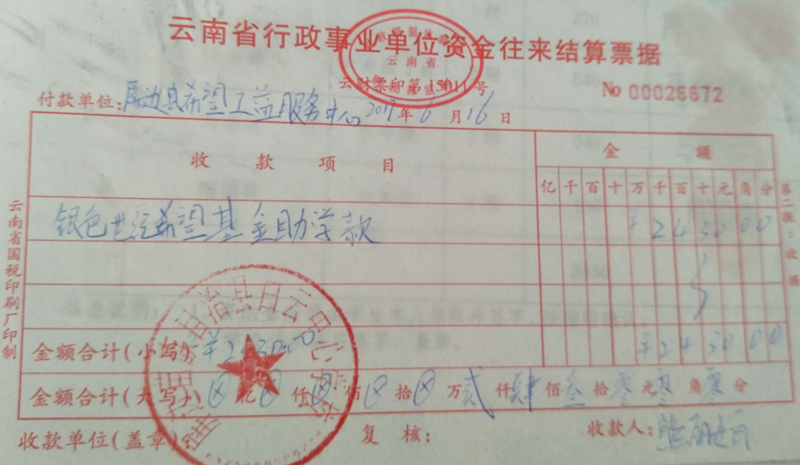 云南省行政事业单位资金往来结算票据
云财票印第15011号
No 00026672
付款单位:屏边县希望工益服务中心 2017年6月16日
收款项目
金额
亿千百十万千百十元角分
银色世纪希望基金助学款
¥243000
金额合计(小写) ¥2430.00
¥243000
金额合计(大写) ⊗亿⊗仟⊗佰⊗拾⊗万贰仟肆佰叁拾零元零角零分
收款单位(盖章)
复核:
收款人:
云南省国税印刷厂印制
第二联:收据
云南省